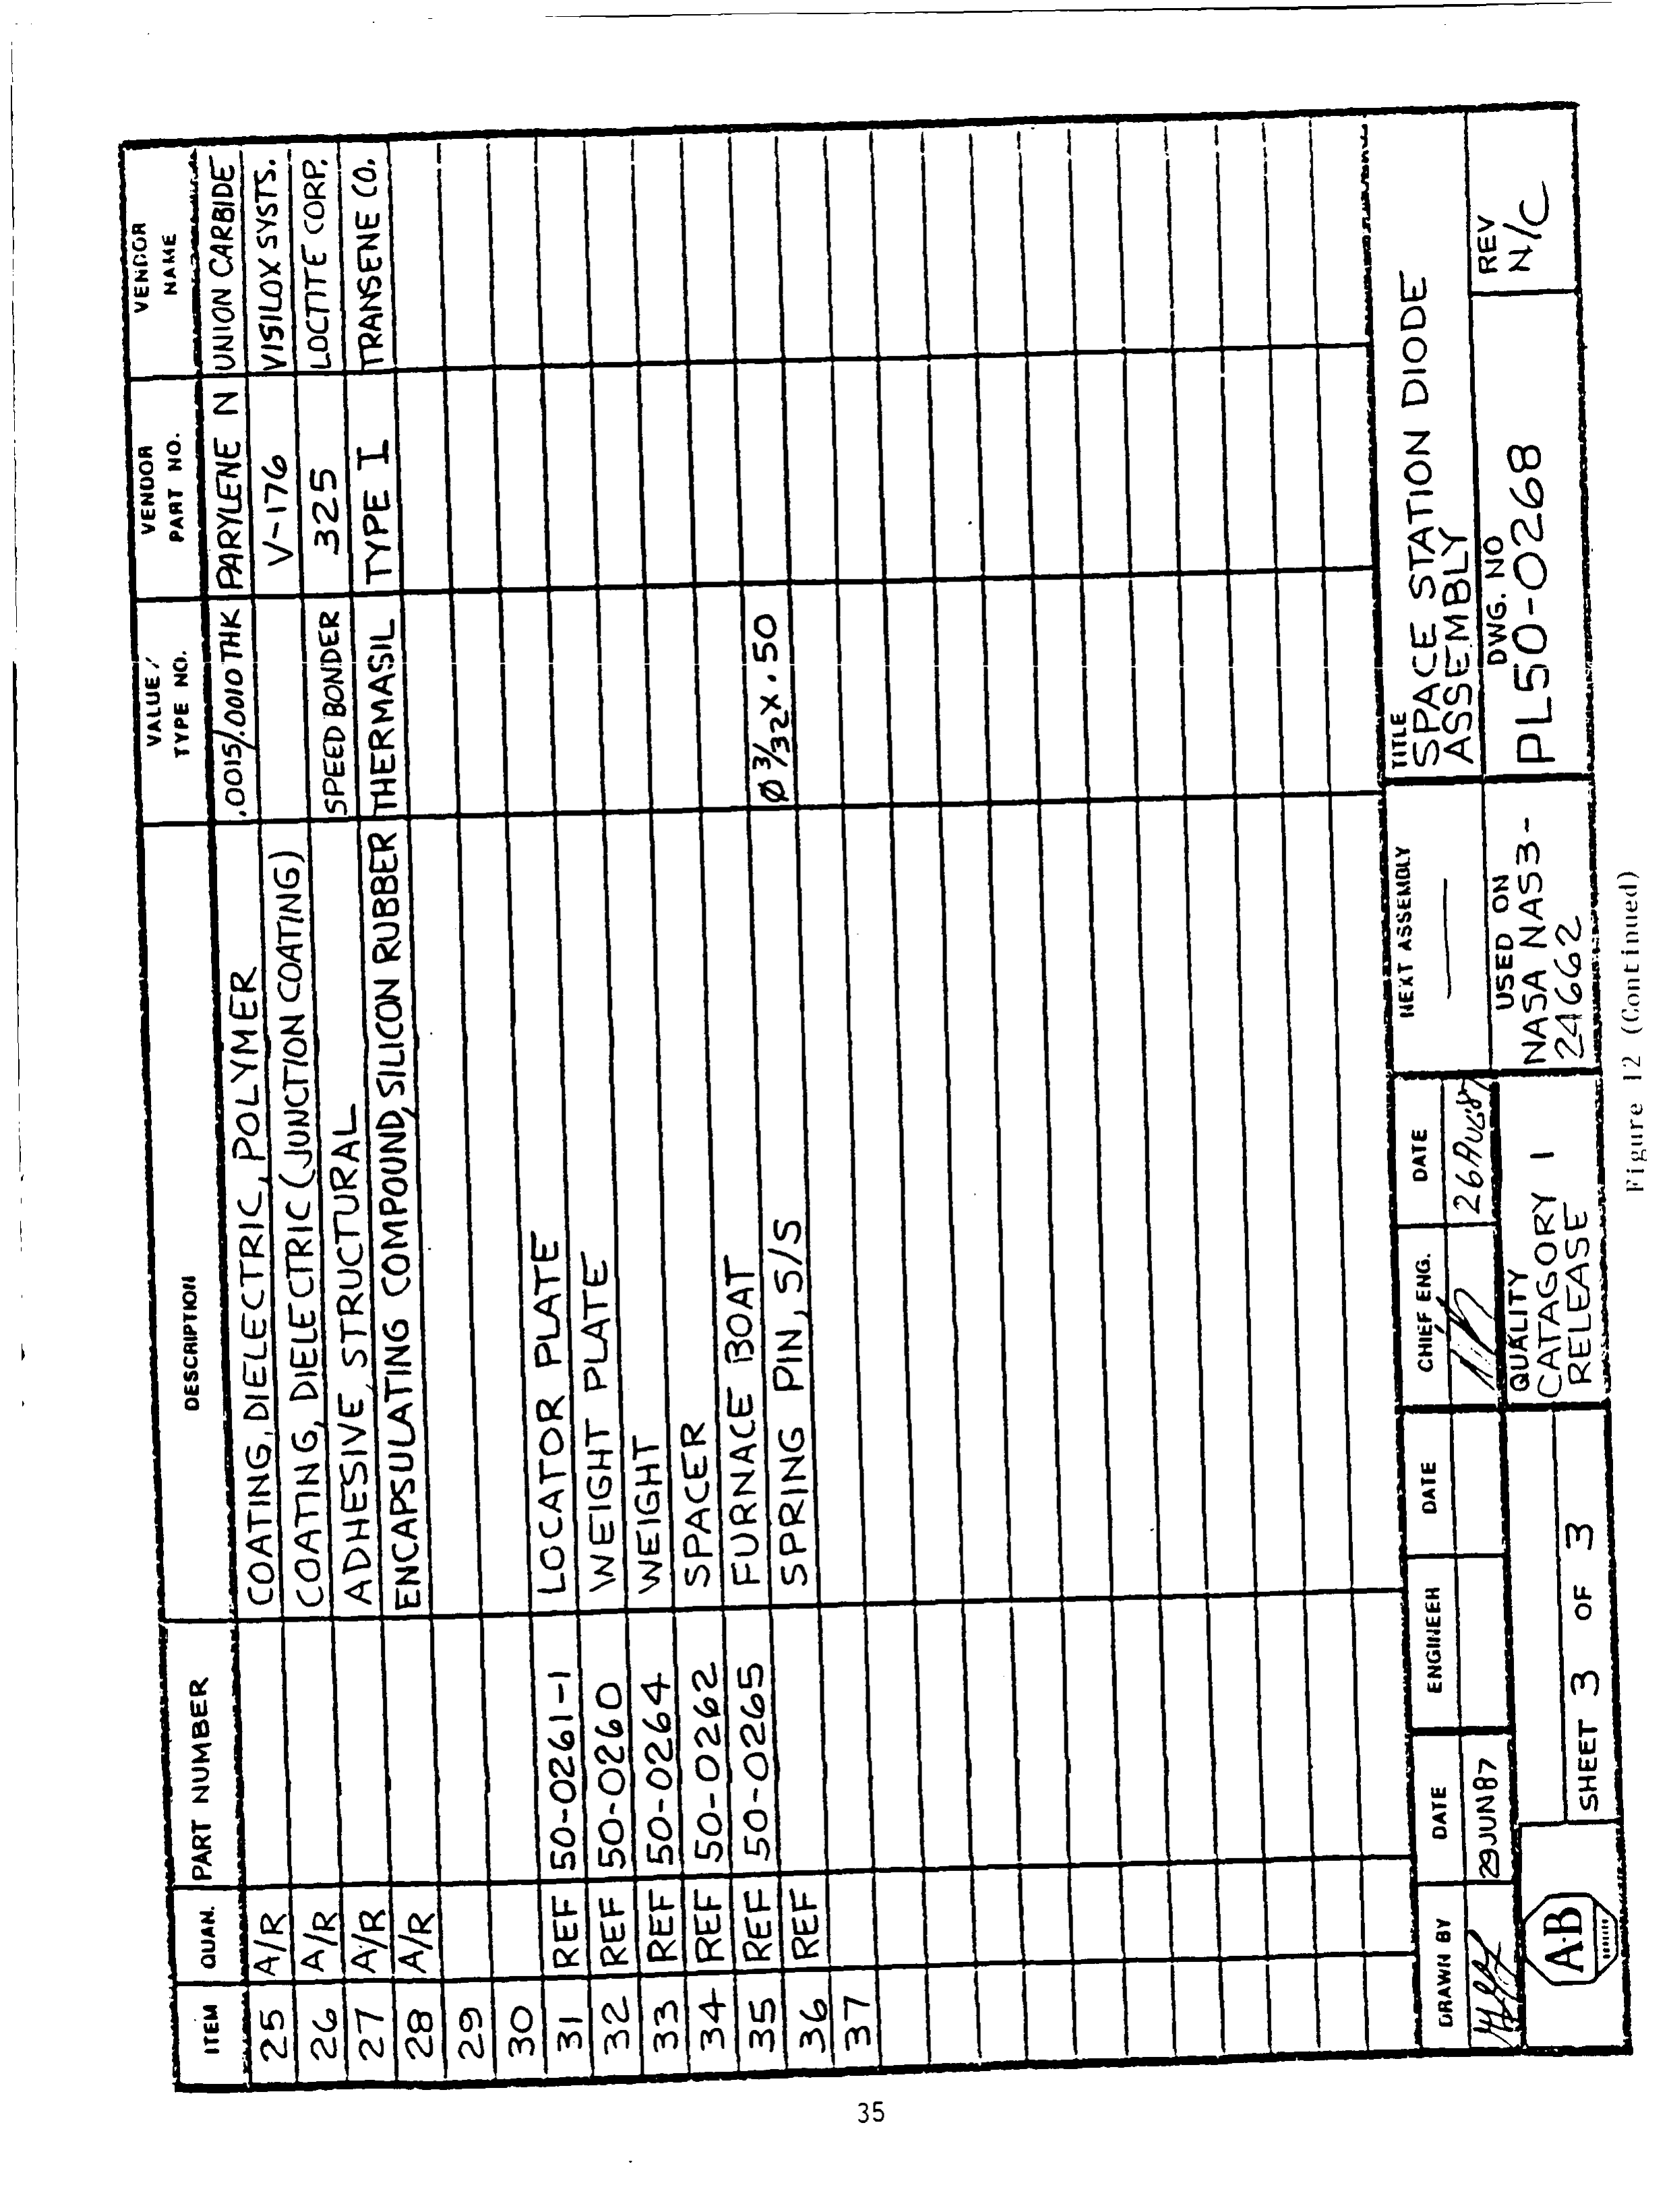 ITEM QUAN. PART NUMBER DESCRIPTION VALUE/ TYPE NO. VENDOR PART NO. VENDOR NAME
25 A/R COATING, DIELECTRIC, POLYMER .0015/.0010 THK PARYLENE N UNION CARBIDE
26 A/R COATING, DIELECTRIC (JUNCTION COATING) V-176 VISILOX SYSTS.
27 A/R ADHESIVE, STRUCTURAL SPEED BONDER 325 LOCTITE CORP.
28 A/R ENCAPSULATING COMPOUND, SILICON RUBBER THERMASIL TYPE I TRANSENE CO.
29
30
31 REF 50-0261-1 LOCATOR PLATE
32 REF 50-0260 WEIGHT PLATE
33 REF 50-0264 WEIGHT
34 REF 50-0262 SPACER
35 REF 50-0265 FURNACE BOAT
36 REF SPRING PIN, S/S Ø 3/32 X .50
37
DRAWN BY DATE ENGINEER DATE CHIEF ENG. DATE NEXT ASSEMBLY TITLE
29JUN87 26AUG87 —
SPACE STATION DIODE
ASSEMBLY
A-B
SHEET 3 OF 3
QUALITY
CATAGORY 1
RELEASE
USED ON
NASA NAS3-
24662
DWG. NO
PL50-0268
REV
N/C
Figure 12 (Continued)
35